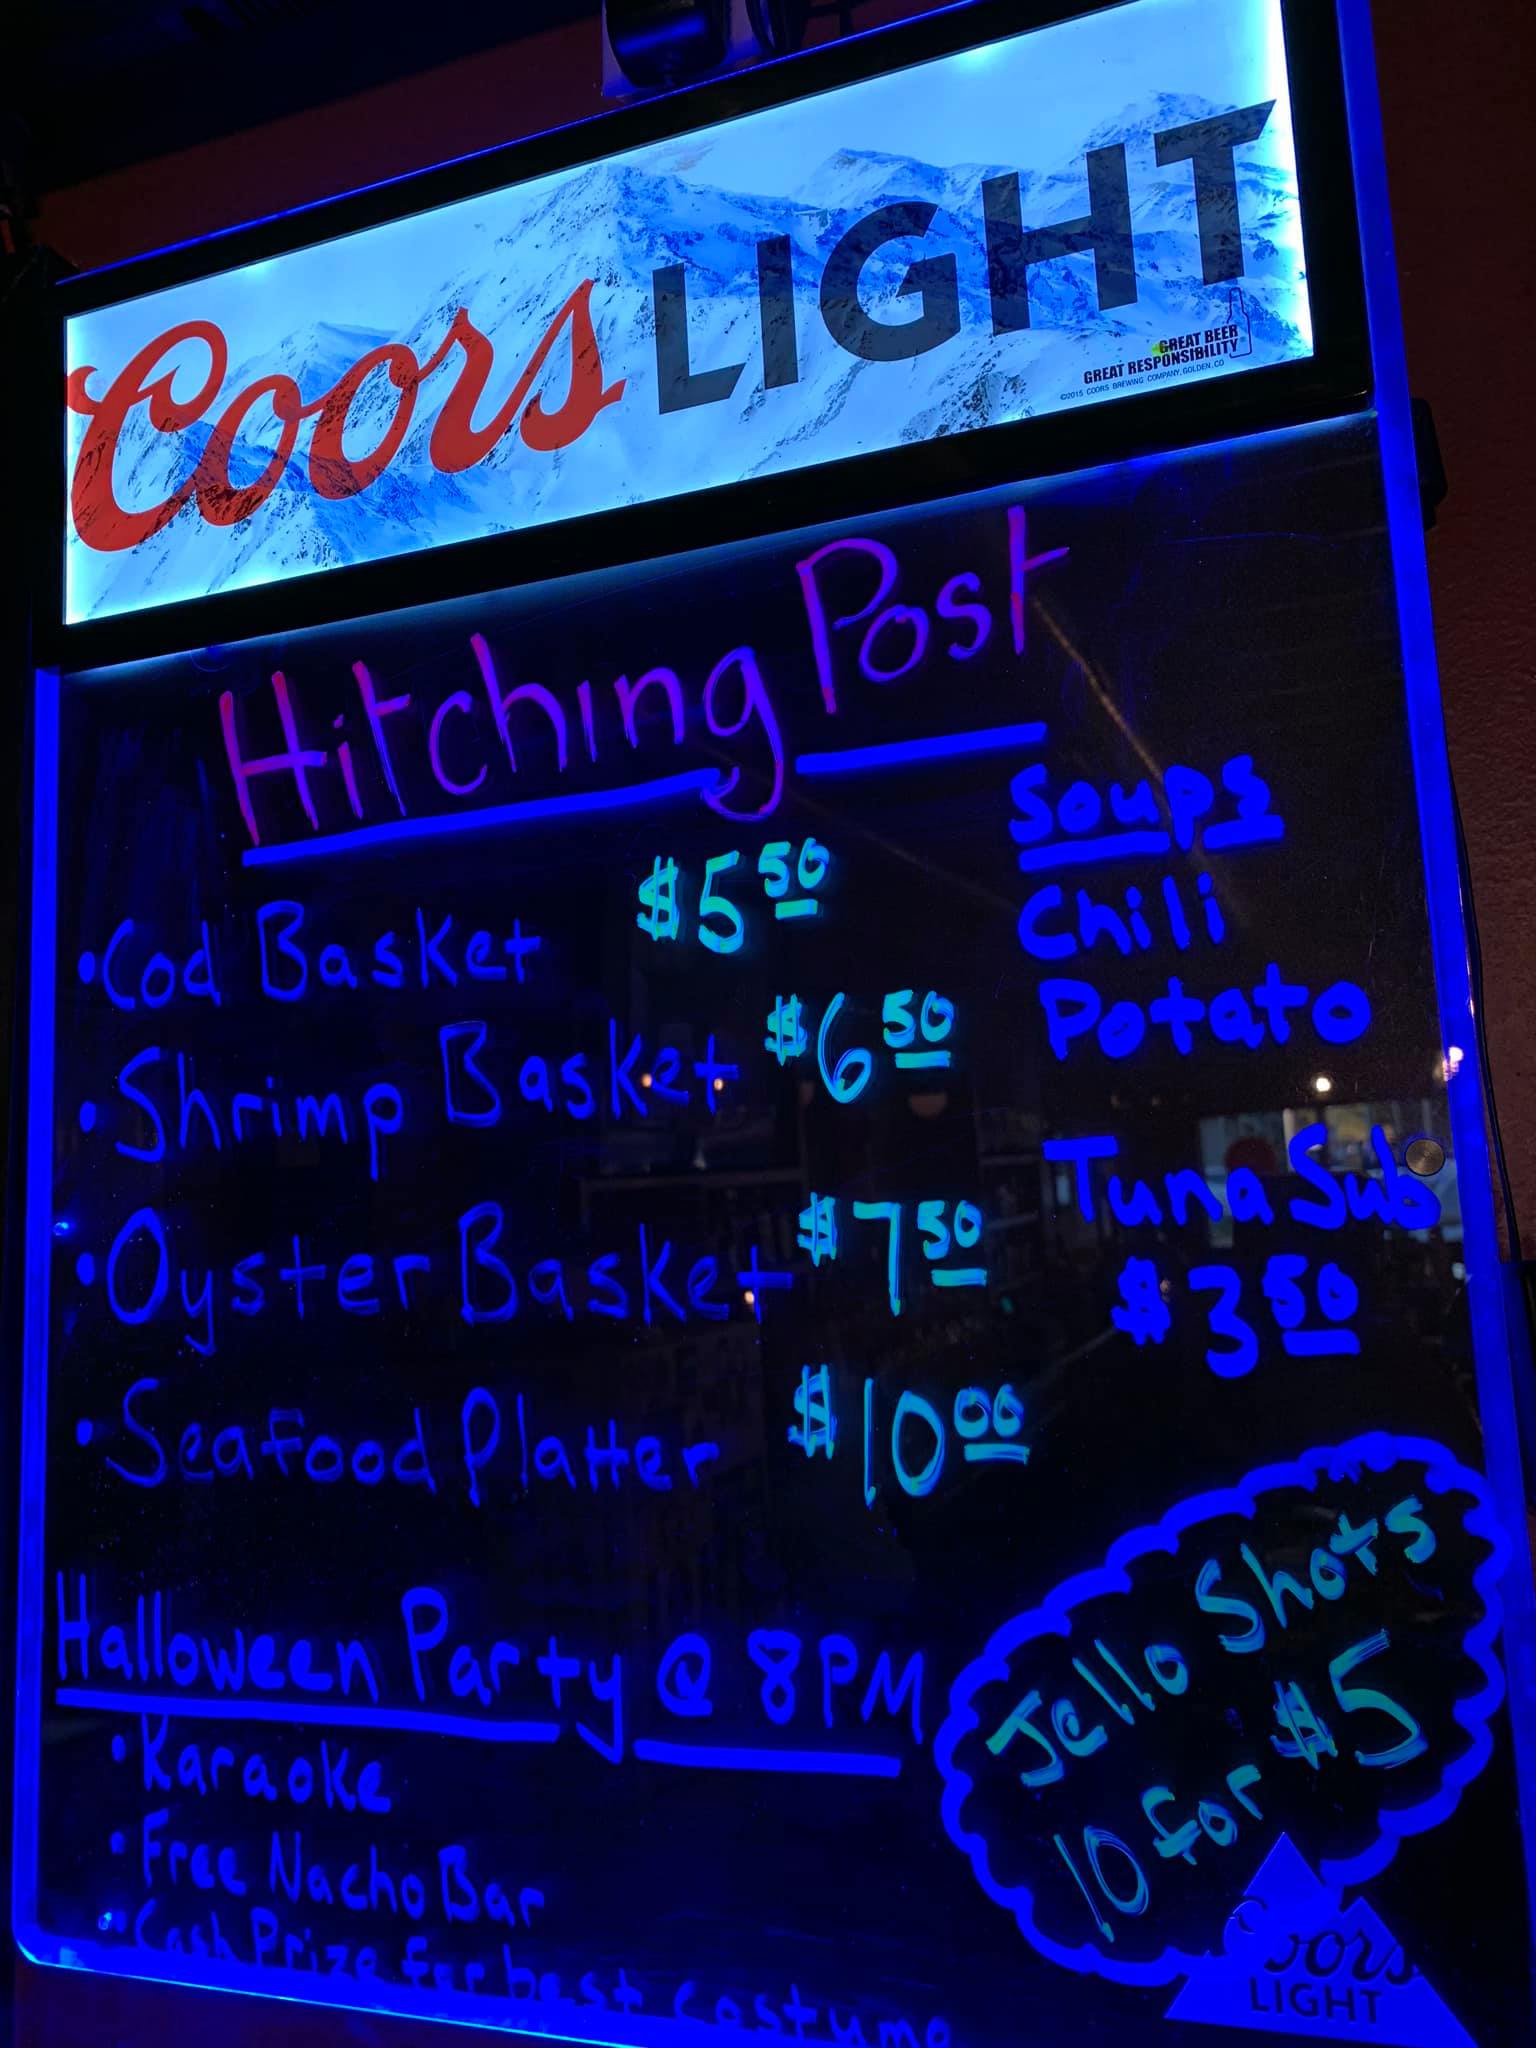 Coors LIGHT
GREAT BEER
GREAT RESPONSIBILITY
©2015 COORS BREWING COMPANY, GOLDEN, CO
Hitching Post
• Cod Basket $5 50
• Shrimp Basket $6 50
• Oyster Basket $7 50
• Seafood Platter $10 00
Soups
Chili
Potato
Tuna Sub
$3 50
Halloween Party @ 8PM
• Karaoke
• Free Nacho Bar
• Cash Prize for best costume
Jello Shots
10 for $5
Coors
LIGHT